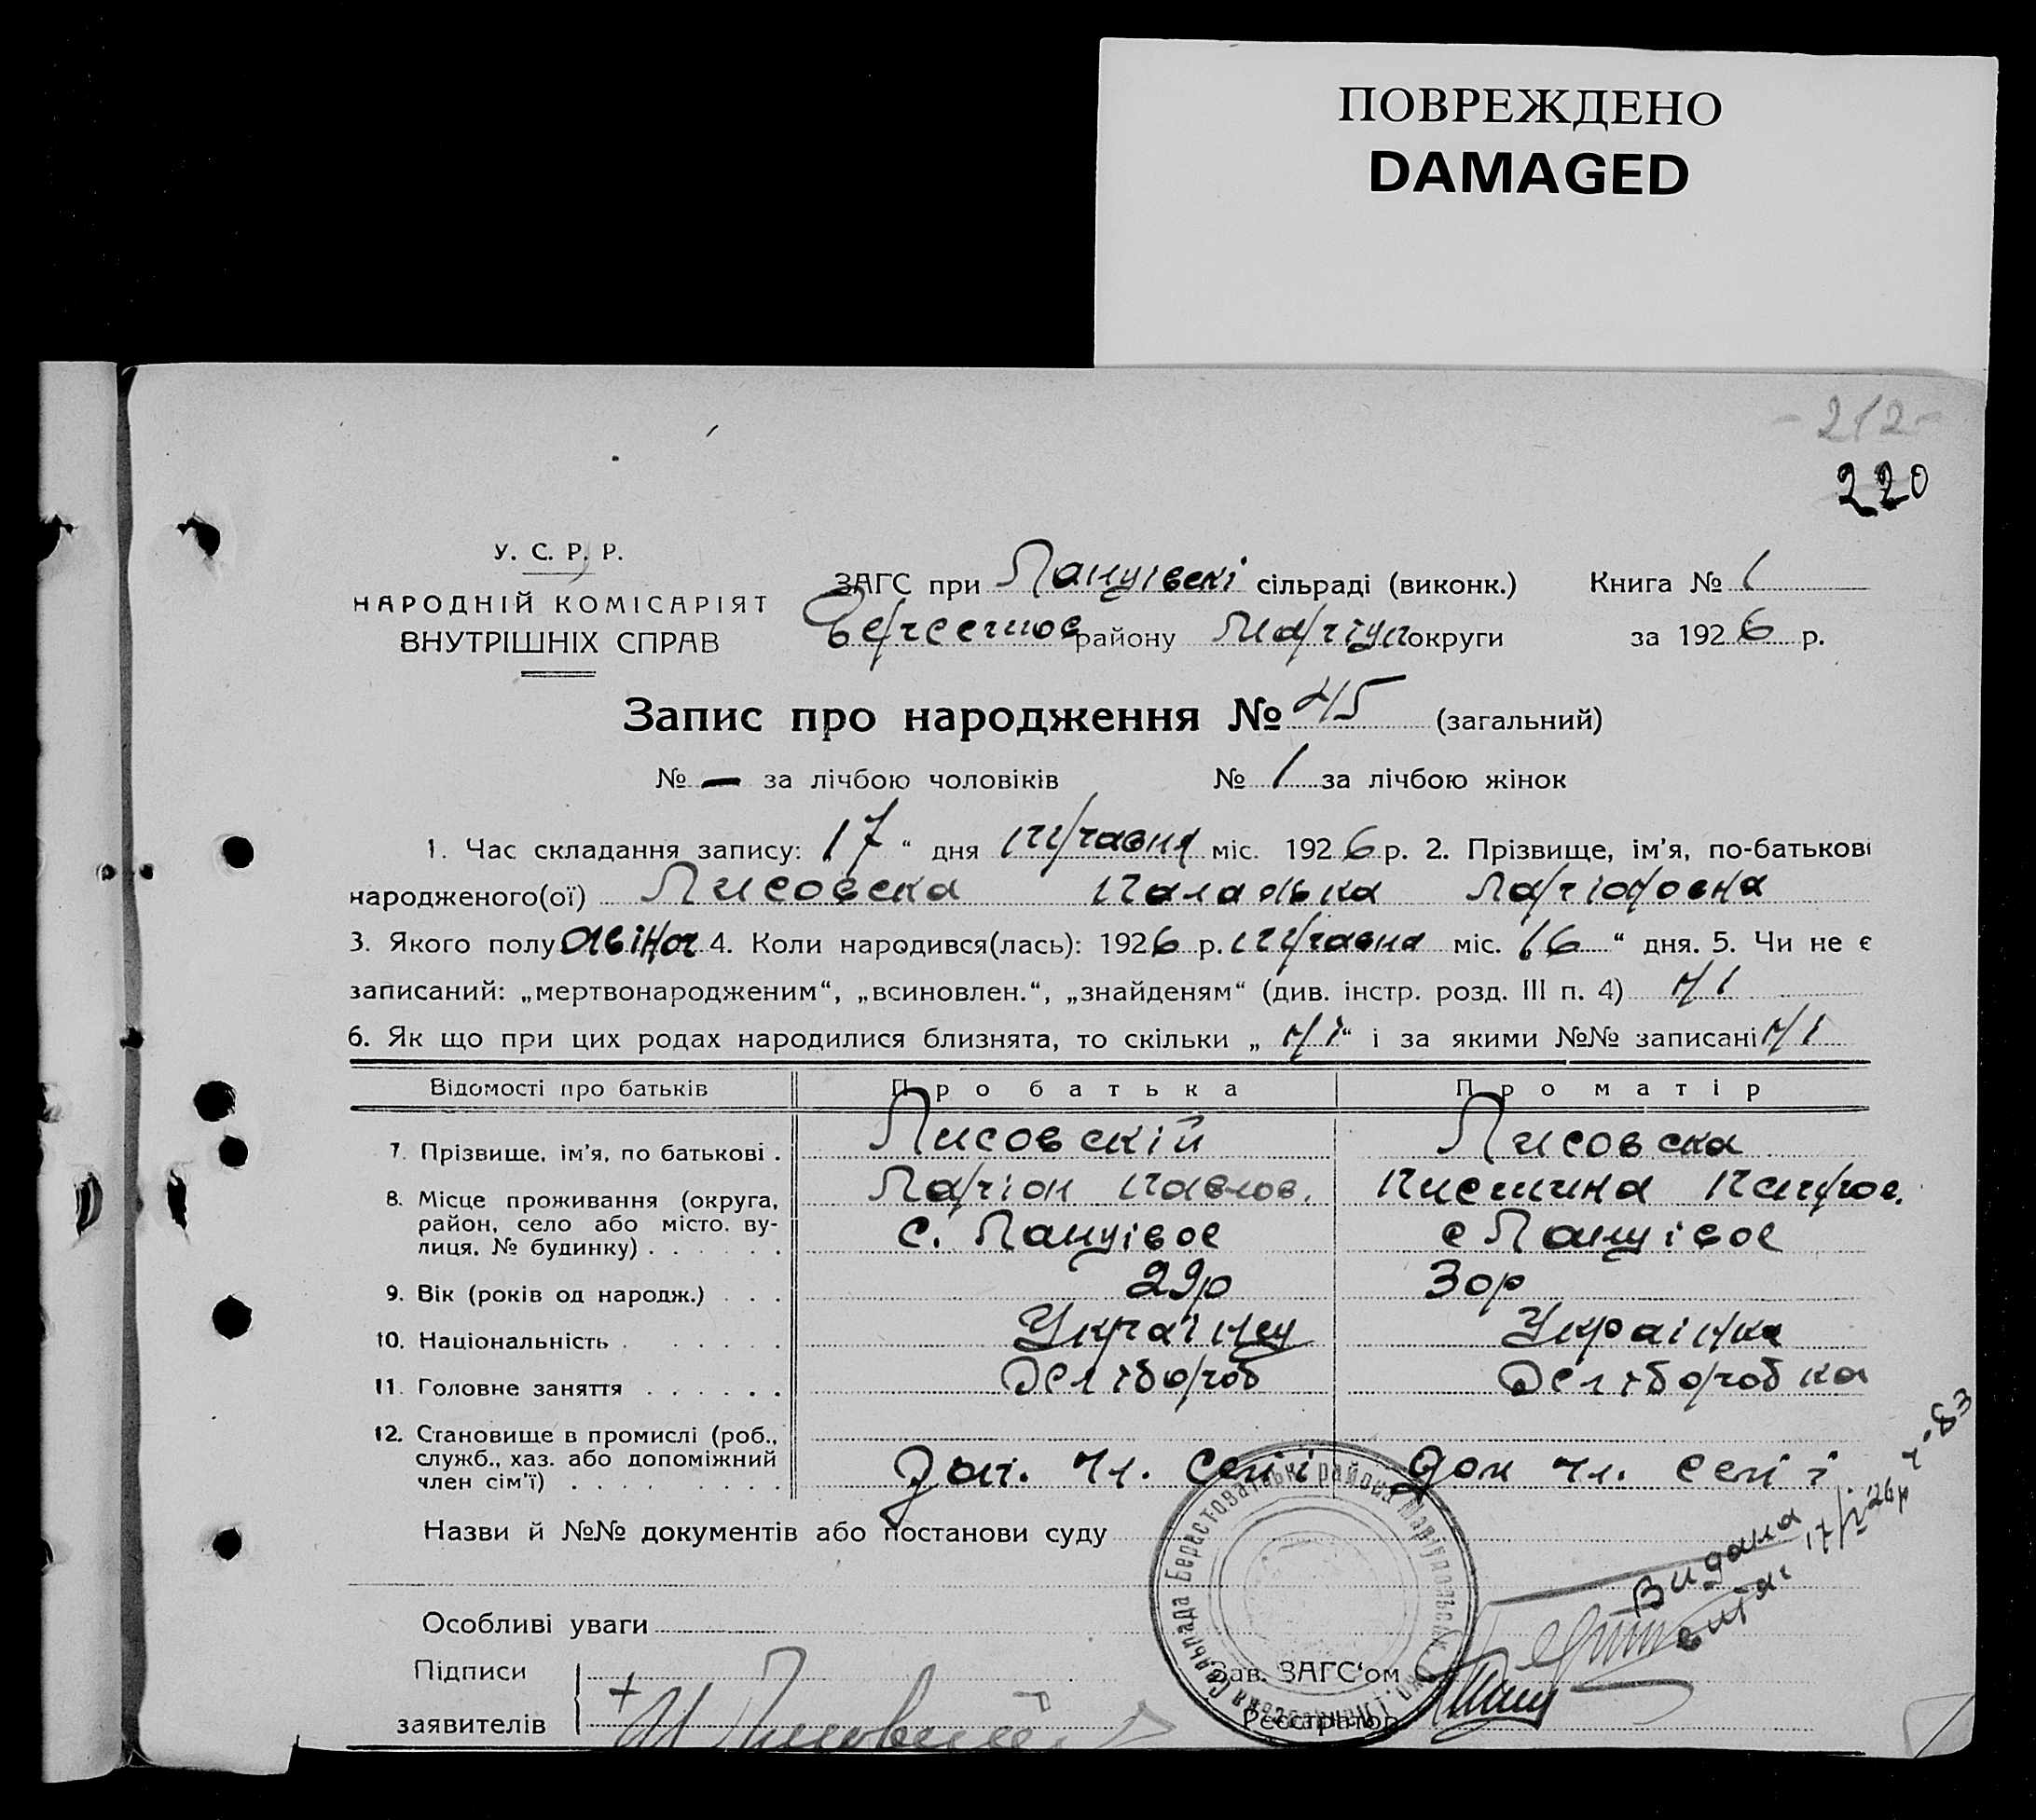 ПОВРЕЖДЕНО
DAMAGED
- 212 -
220
У. С. Р. Р.
НАРОДНІЙ КОМІСАРІЯТ
ВНУТРІШНІХ СПРАВ
ЗАГС при сільраді (виконк.) Книга № 1
району округи за 1926 р.
Запис про народження № 45 (загальний)
№ — за лічбою чоловіків № 1 за лічбою жінок
1. Час складання запису: 17 “ дня травня міс. 1926 р. 2. Прізвище, ім’я, по-батькові
народженого(ої) Лисовска Палажка Ларіоновна
3. Якого полу 4. Коли народився(лась): 1926 р. травня міс. 16 “ дня. 5. Чи не є
записаний: „мертвонародженим“, „всиновлен.“, „знайденям“ (див. інстр. розд. III п. 4) ні
6. Як що при цих родах народилися близнята, то скільки „ ні “ і за якими №№ записані ні
Відомості про батьків Про батька Про матір
7. Прізвище, ім’я, по батькові . Лисовскій Лисовска
Ларіон Павлов.
8. Місце проживання (округа,
район, село або місто. ву-
лиця. № будинку) . . . . . . с. с
9. Вік (років од народж.) . . . 29р 30р
10. Національність . . . . . . Українец Українка
11. Головне заняття . . . . . . Хлібороб Хліборобка
12. Становище в промислі (роб.,
служб., хаз. або допоміжний
член сім’ї) . . . . . . . . . доп. чл. семі доп чл. семі
Назви й №№ документів або постанови суду
Видана
Особливі уваги
Підписи
заявителів
Зав. ЗАГС‘ом
Реєстратор